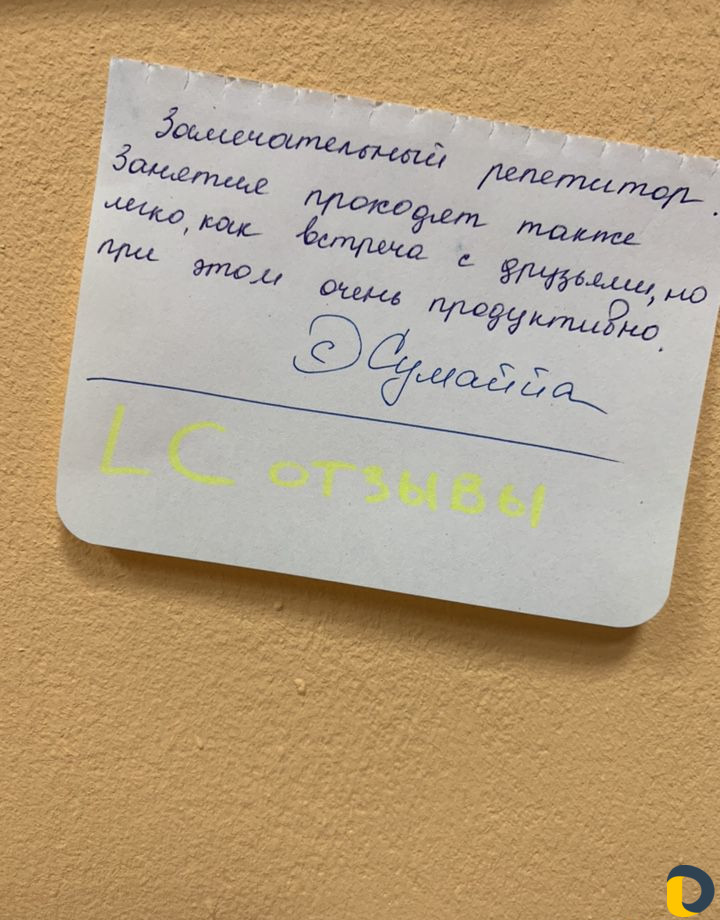 Замечательный репетитор.
Занятия проходят также
легко, как встреча с друзьями, но
при этом очень продуктивно.
© Сумаййа
LC отзывы